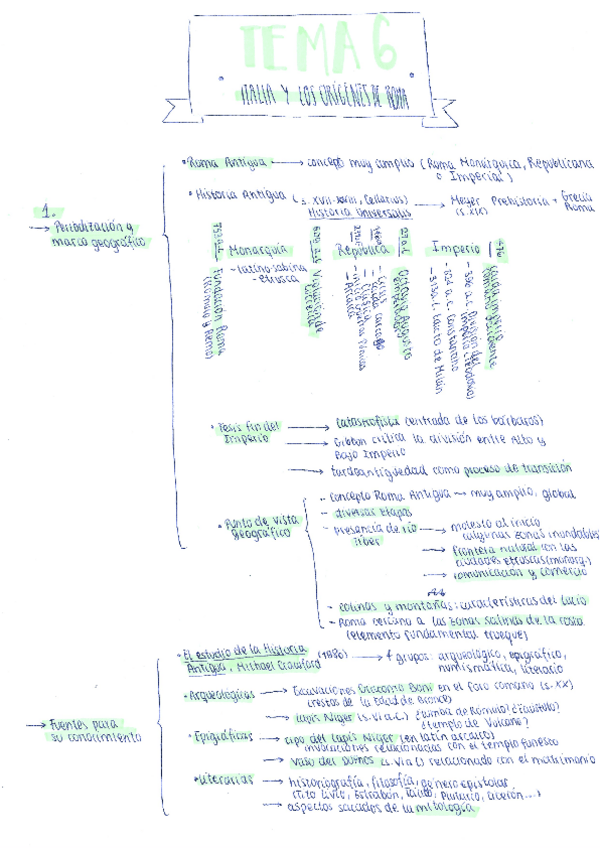 TEMA 6
ITALIA Y LOS ORÍGENES DE ROMA
1.
→ Periodización y
marco geográfico
• Roma Antigua → concepto muy amplio (Roma Monárquica, Republicana
o Imperial)
• Historia Antigua (s. XVII-XVIII, Cellarius) → Meyer Prehistoria + Grecia
Historia Universalis (s. XIX) Roma
753 a.C.
Fundación Roma
(Rómulo y Remo)
Monarquía
- latino-sabina
- etrusca
República
- Arcaica
- Clásica
27 a.C.
Octavio Augusto
Imperio
476
- 313 a.C. Edicto de Milán
• Tesis fin del
Imperio
→ catastrofista (centrada de los bárbaros)
→ Gibbon critica la división entre Alto y
Bajo Imperio
→ tardoantigüedad como proceso de transición
• Punto de vista
geográfico
- concepto Roma Antigua → muy amplio, global
- diversas etapas
- presencia de río
Tíber
→ molesto al inicio
(algunas zonas inundables)
→ frontera natural con las
ciudades etruscas (monarq.)
→ comunicación y comercio
- colinas y montañas: características del Lacio
- Roma cercano a las zonas salinas de la costa
(elemento fundamental trueque)
→ Fuentes para
su conocimiento
• El estudio de la Historia (1986) → 4 grupos: arqueológico, epigráfico,
Antigua, Michael Crawford numismática, literario
• Arqueológicas → Excavaciones Giacomo Boni en el foro romano (s. XX)
(restos de la Edad de Bronce)
→ Lapis Niger (s. VI a.C.) ¿Tumba de Rómulo?
¿Templo de Vulcano?
• Epigráficas → cipo del Lapis Niger (en latín arcaico)
invocaciones relacionadas con el templo funesto
→ vaso del Duenos (s. VI a.C) relacionado con el matrimonio
• Literarias → historiografía, filosofía, género epistolar
(Tito Livio, Estrabón, Tácito, Plutarco, Cicerón...)
→ aspectos sacados de la mitología